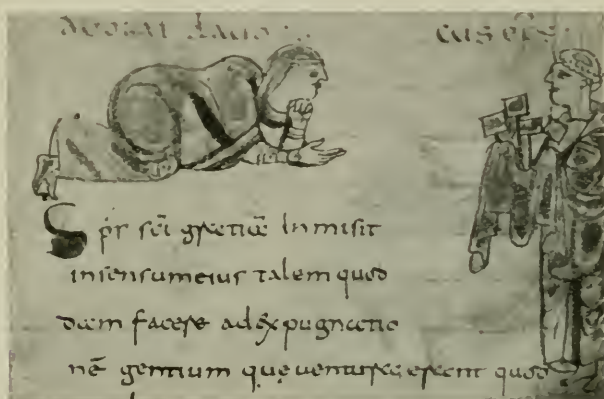 Spr sc̄i gratiæ Inmisit
insensumeius talem quod
dam facere adexpugnatio
nē gentium quę uenturę erant quod